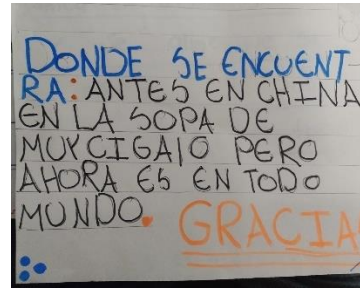 DONDE SE ENCUENT
RA: ANTES EN CHINA
EN LA SOPA DE
MUYCIGAlO PERO
AHORA ES EN TODO
MUNDO. GRACIA